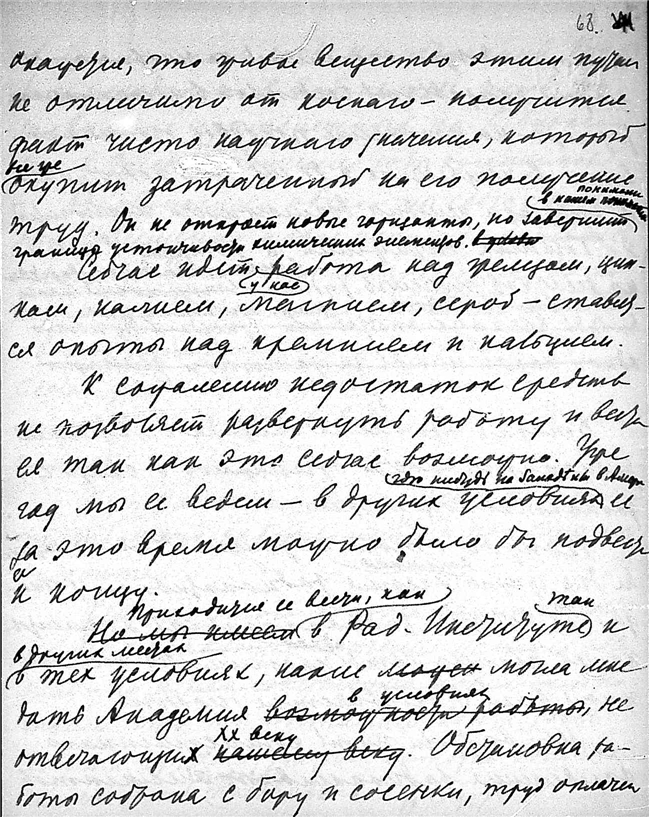 68.
окажется, что живое вещество этим путем
не отличимо от косного – получится
факт чисто научного значения, который
все же
окупит затраченный на его получение
в нашем понимании
труд. Он не откроет новые горизонты, но завершит
границу устойчивости химических элементов.
Сейчас идет работа над железом, цин-
у нас
ком, калием, магнием, серой – ставят-
ся опыты над кремнием и кальцием.
К сожалению недостаток средств
не позволяет развернуть работу и вести
ее так как это сейчас возможно. Уже
где нибудь на Западе или в Амер
год мы ее ведем – в других условиях ее
за это время можно было бы подвести
к концу.
Приходится ее вести, как там
Но мы имеем в Рад. Институте и
в других местах
в тех условиях, какие могла мне
в условиях
дать Академия возможности работы, не
XX веку
отвечающих нашему веку. Обстановка ра-
боты собрана с бору и сосенки, труд оплачен